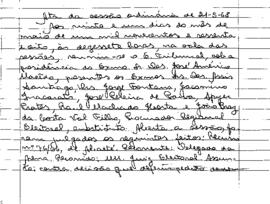 Ata da sessão ordinária de 21-5-68
Aos vinte e um dias do mês de
maio de um mil novecentos e sessenta
e oito, às dezessete horas, na sala das
sessões, reuniu-se o E. Tribunal, sob a
presidência do Exmo. Sr. Des. José Américo
Macêdo, presentes os Exmos. Srs. Des. Jessis
Santiago, Drs. Jorge Fontana, Jacomino
Inacarato, José Pereira de Paiva,
Prates, Raul Machado Horta e João Braz
da Costa Val Filho, Procurador Regional
Eleitoral, substituto. Aberta a sessão, fo-
ram julgados os seguintes feitos: Recurso
nº 76/68, de Recorrente: Delegado da
Arena. Recorrido: MM. Juiz Eleitoral. Assun-
to: contra decisão que deferiu